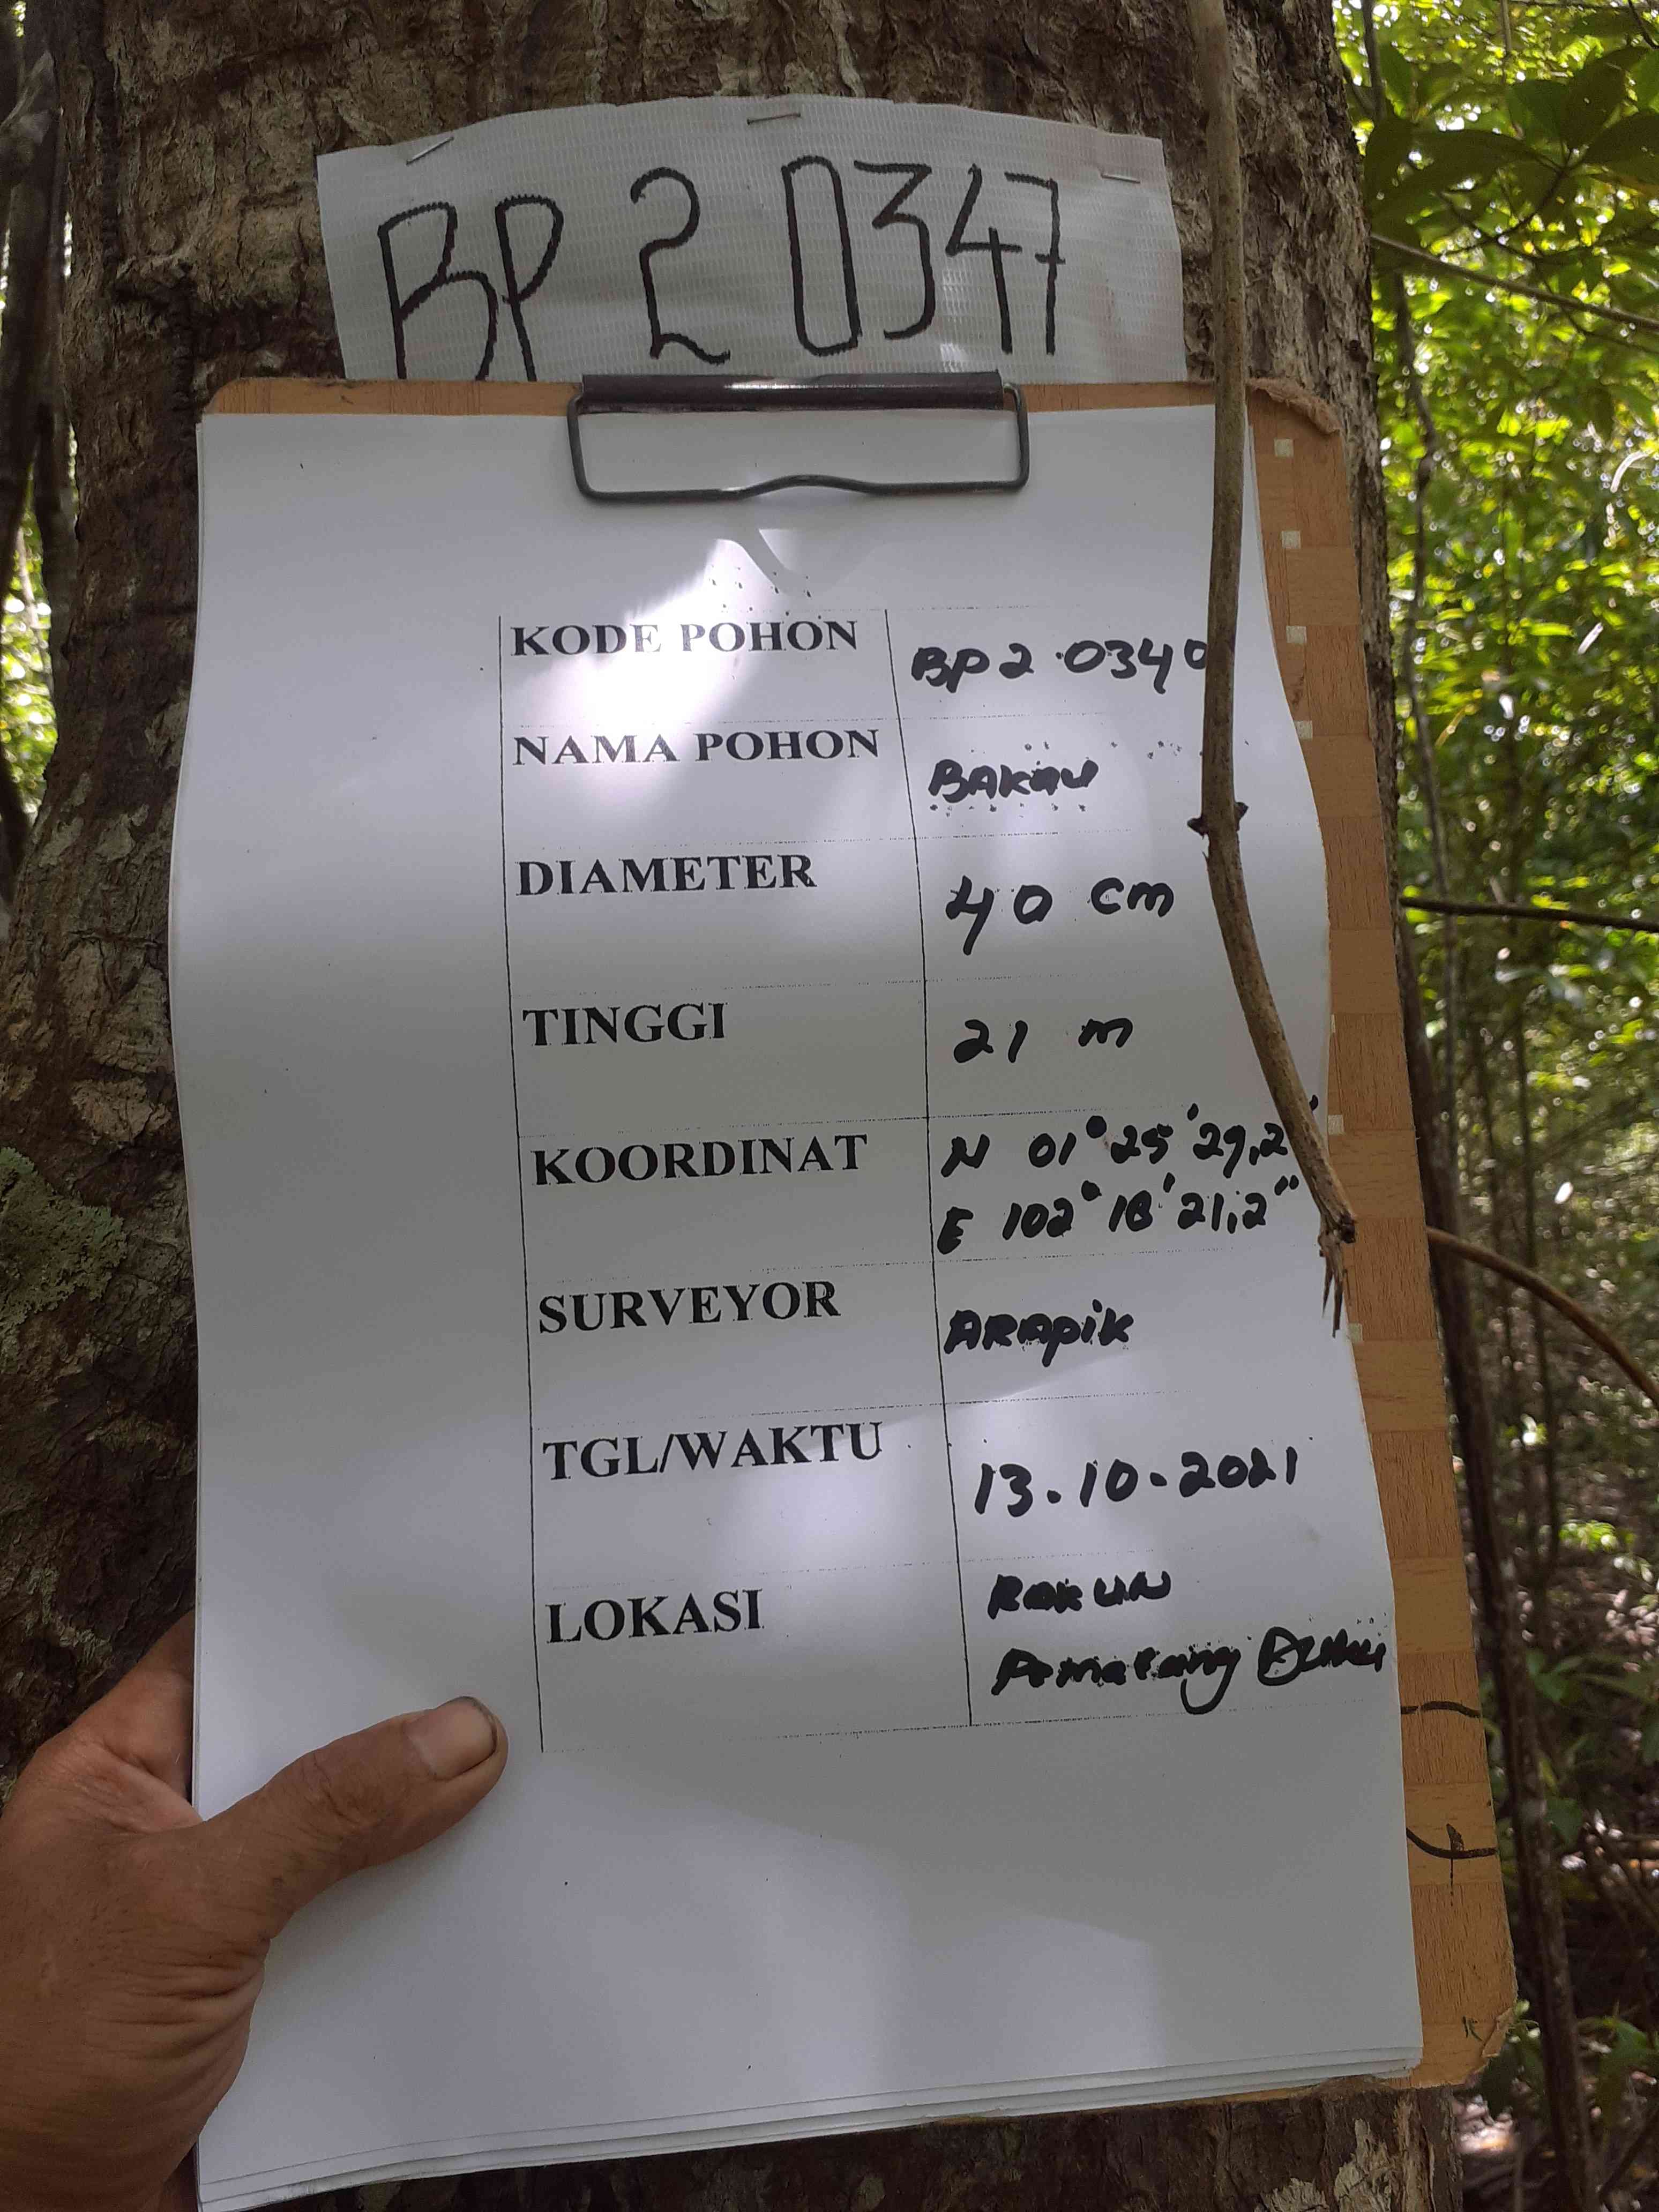 BP 2 0347
KODE POHON BP2.0340
NAMA POHON BAKAU
DIAMETER 40 cm
TINGGI 21 m
KOORDINAT N 01° 25' 29,2"
E 102° 18' 21,2"
SURVEYOR ARAPIK
TGL/WAKTU 13.10-2021
LOKASI
Pematang Duku